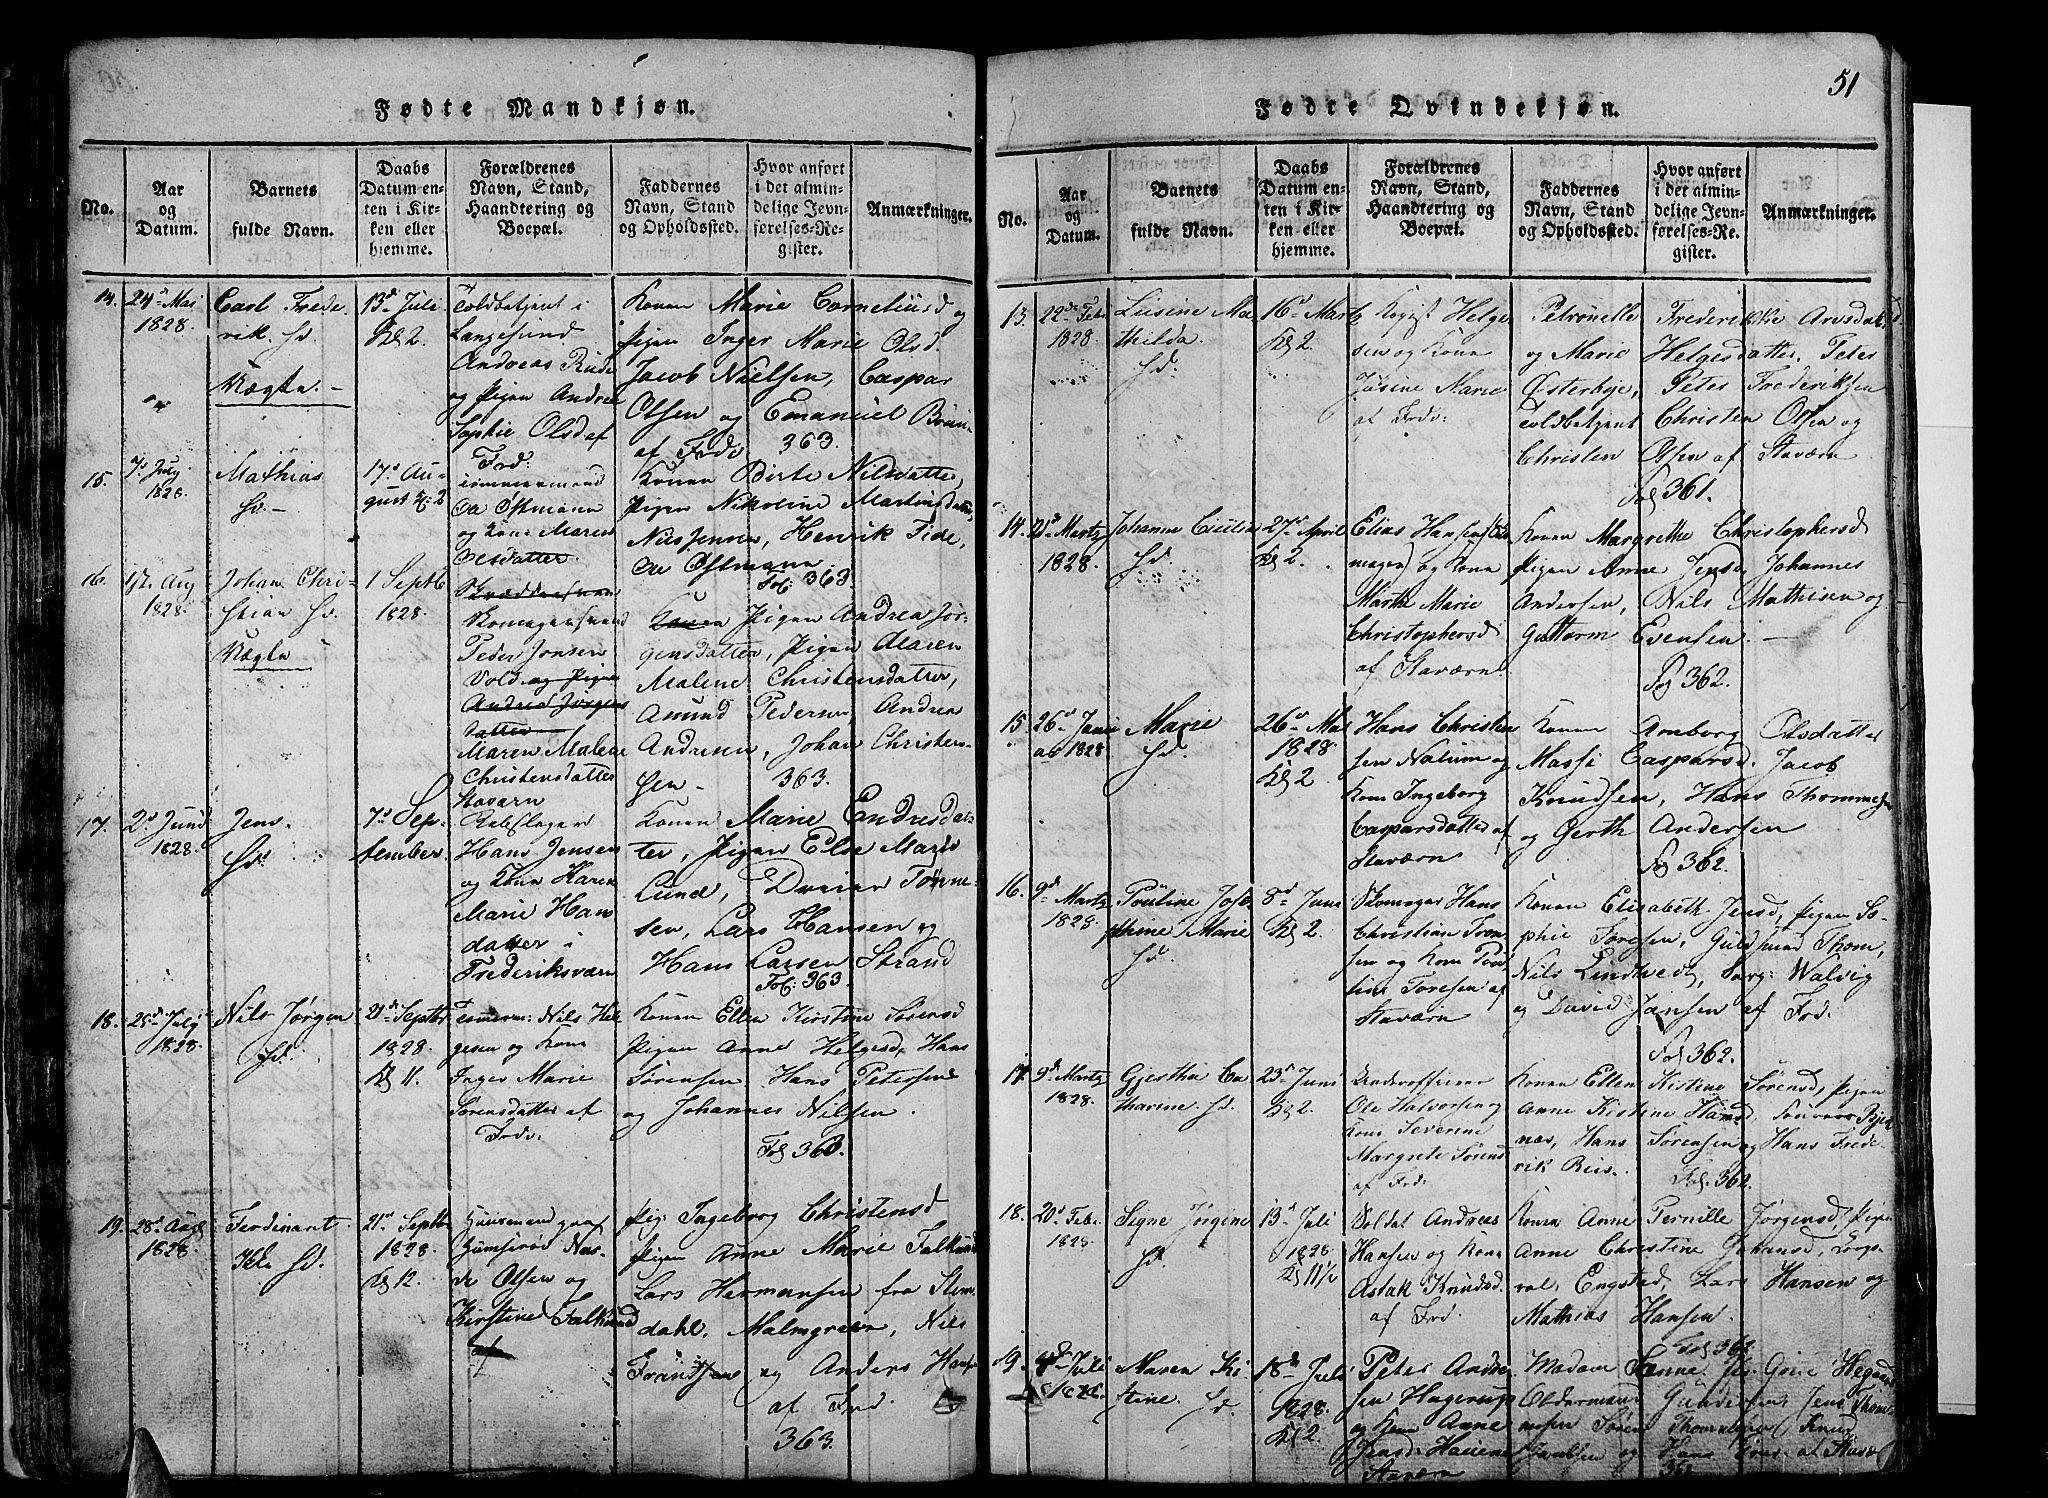 51
Fødte Mandkjøn.
No.
Aar
og
Datum.
Barnets
fulde Navn.
Daabs
Datum en-
ten i Kir-
ken eller
hjemme.
Forældrenes
Navn, Stand,
Haandtering og
Boepæl.
Faddernes
Navn, Stand
og Opholdssted.
Hvor anført
i det almin-
delige Jevn-
førelses-Re-
gister.
Anmærkninger.
14.
24d Mai
1828.
Carl Frede-
rik. hd.
Uægta. -
13d Juli
Kl 2.
Toldbetjent i
Langesund
Andreas Rude
og Pigen Andrea
Sophie Olsd af
Frd:
Konen Marie Corneliusd og
Pigen Inger Marie Olsd.
Jacob Nielsen, Caspar
Olsen og Emanuel Bruun
af Frdv. 363.
15.
7d July
1828
Mathias
hd. -
17d Au-
gust Kl: 2
Tømmermand
Ole Østmann
og Kone Maren
Olsdatter.
Konen Birte Nilsdatter,
Pigen Nikoline Martinsdatter,
Nils Jensen, Henrik Fide,
Ole Østmann
Fol: 363
16.
12. Aug
1828.
Johan Chri-
stian hd.
Uægta
1 Septb
1828.
Peder Jonsen
Vold og Pigen
Andrea Jørgens
datter
Maren Malene
Christensdatter
Staværn
Konen Pigen Andrea Jør-
gensdatter, Pigen Maren
Malene Christensdatter,
Amund Pedersen, Andrea
Andresen, Johan Christen-
sen - 363.
17.
2d Juni
1828.
Jens.
hd.
7d Sep-
tember.
Rebslager
Hans Jensen
og Kone Karen
Marie Hans
datter i
Frederiksværn
Konen Marie Endresdat-
ter, Pigen Else Marie
Lund, Dreier Tønne-
sen, Lars Hansen og
Hans Larsen Strand
Fol: 363.
18.
28d July
1828.
Nils Jørgen
hd.
21d Septbr
1828.
Kl 11.
Tømmerm: Nils Hel-
gesen og Kone
Inger Marie
Sørensdatter af
Frdv.
Konen Ellen Kirstine Sørensd
Pigen Anne Helgesd, Hans
Sørensen. Hans Petersen
og Johannes Nilsen.
Fol 363.
19.
28d Aug
1828.
Ferdinant
hd.
21d Septb
1828.
Kl 12.
Huusmand fra
Olsen og
Kirstine Falklund
af
Pig: Ingeborg Christensd
Pigen Anne Marie Falklund
Lars Hermansen fra Stem-
dahl, Malmgreen, Nils
Frantsen og Anders Hansen
af Frd.
363.
Fødte Qvindekjøn.
No.
Aar
og
Datum.
Barnets
fulde Navn.
Daabs
Datum en-
ten i Kir-
ken eller
hjemme.
Forældrenes
Navn, Stand,
Haandtering og
Boepæl.
Faddernes
Navn, Stand
og Opholdssted.
Hvor anført
i det almin-
delige Jevn-
førelses-Re-
gister.
Anmærkninger.
13.
22de Feb
1828.
Lusine Ma-
thilda.
hd.
16d Martz
Kl 2.
Helge-
sen og Kona
Jusine Marie
af Frdv.
Petronelle Frederikke Arsdal,
og Marie Helgesdatter, Peter
Østerbye, Peter Frederiksen
Toldbetjent Christen Olsen og
Christen Olsen af Staværn
Fol 361.
14.
21d Martz
1828.
Johanne Cecilia
hd.
27d April
Kl 2.
Elias Hansen
og Kona
Marthe Marie
Christophersd
af Staværn.
Konen Margrethe Christophersd
Pigen Anne Jensd, Johannes
Andersen, Nils Mathisen og
Guttorm Evensen. -
Fol 362.
15.
26d Janu
ar 1828.
Marie
hd.
26d Mai
1828.
Kl 2
Hans Christen
sen Nalum og
Kone Ingeborg
Casparsdatter af
Staværn
Konen Arnborg Olsdatter
Massi Caspersd. Jacob
Knudsen, Hans Thommesen
og Gerth Andersen
Fol 362.
16.
9d Martz
1828.
Pouline Jose-
phine Marie
hd.
8d Juni
Kl 2.
Skomager Hans
Christian Tron-
sen og Kone Pou-
line Toresen af
Staværn
Konen Elisabeth Jensd, Pigen So-
phie Toresen, Guldsmed Thom,
Nils Lindtvedt, Serg: Walvig
og David Jansen af Frd.
Fol 362.
17.
9d Martz
1828.
Gjertha Ca
tharine. hd.
23d Juni
Kl 2.
Underofficeer
Ole Halvorsen og
Kone Severine
Margrete Sørens
af Frd.
Konen Ellen Kistine Sørensd, Pigen
Anne Kistine Hansd,
Hans Sørensen og Hans Frede
rik Reis.
Fol. 362.
18.
20d Feb.
1828.
Signe Jørgine
hd.
13d Juli
1828.
Kl 11½
Soldat Andreas
Hansen og Kona
Astak Knudsd.
af Frd
Konen Anne Pernille Jørgensd, Pigen
Anne Christine Johansd, Corpo-
ral, Engstad, Lars Hansen og
Mathias Hansen.
Fol 362
19.
4d Juli
1828.
Maren Ki-
stine. hd.
18de Juli
1828.
Kl 2.
Peter Andre
sen Hagerup
og Kone Anne
Jensd: Hauene
Staværn
Madam Sanne, Jfr Gine Hegaard
Oldermand Gundersen, Jens Thom-
mesen Søren Thommesen, Knud
Jacobsen og Hans af Stavæ
362